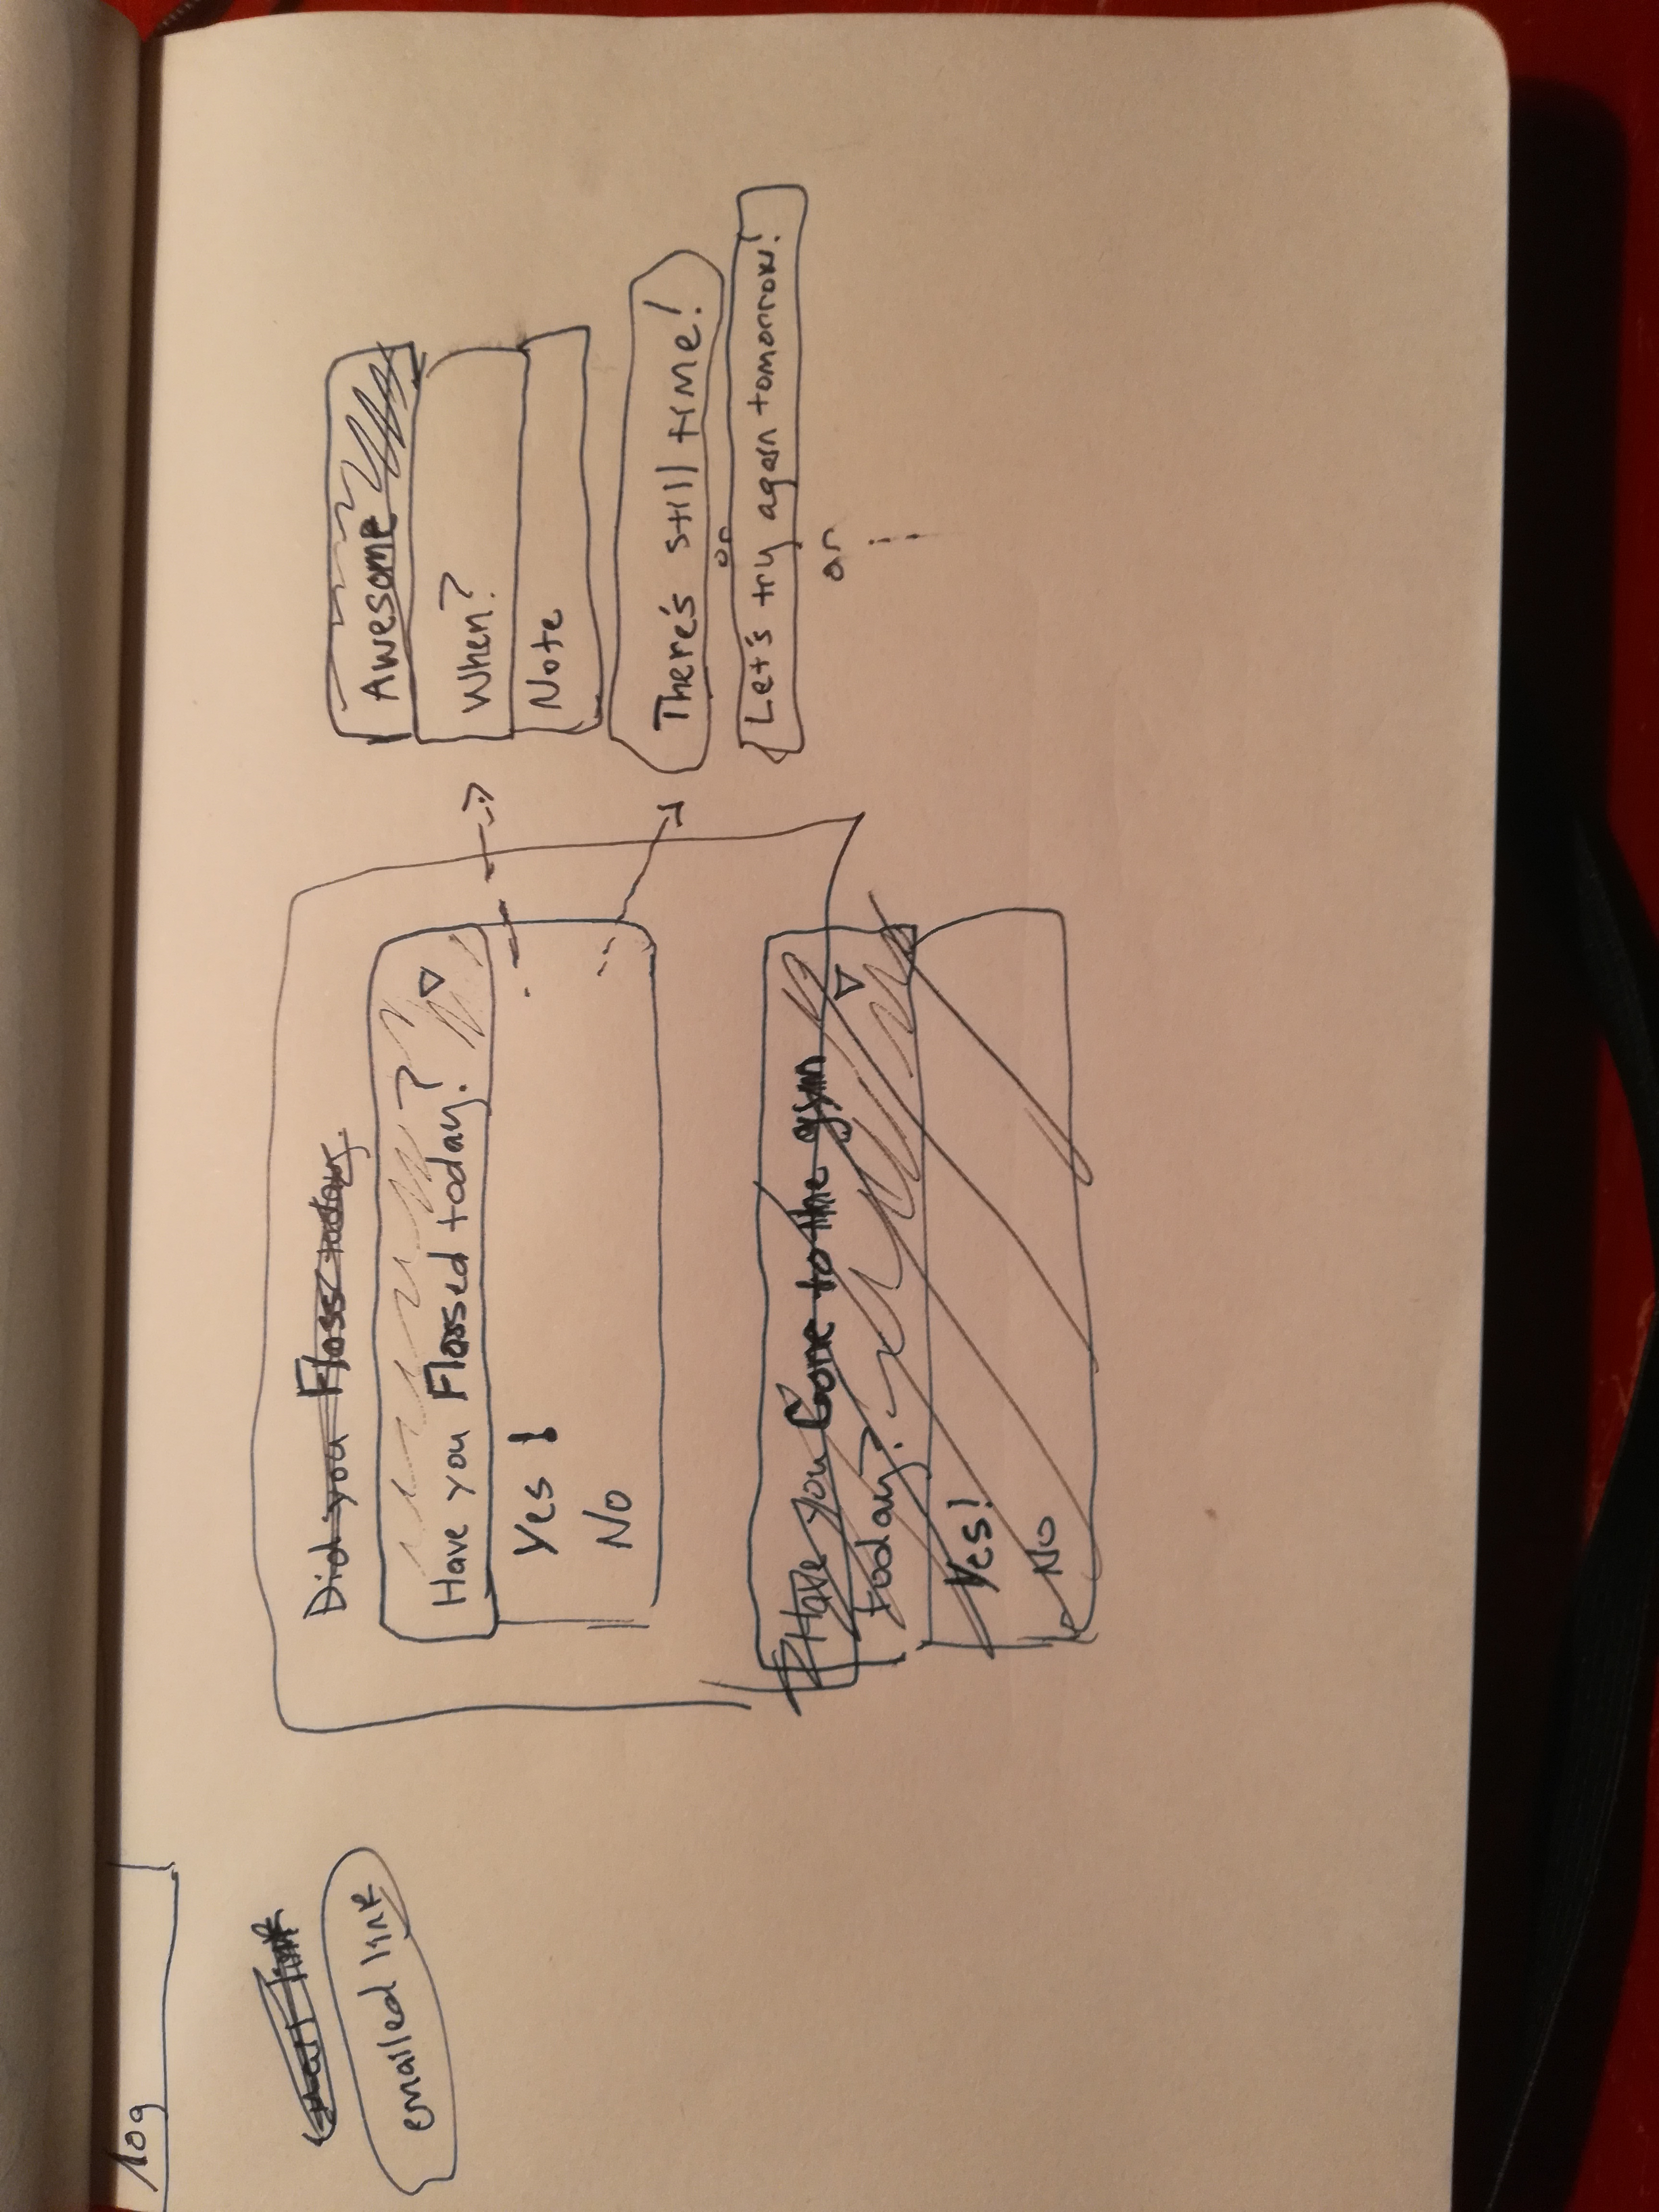 log
emailed link
Did you Floss today
Have you Flossed today?
Yes!
No
Have you Gone to the gym
today?
Yes!
No
Awesome
When?
Note
There's still time!
or
Let's try again tomorrow!
or